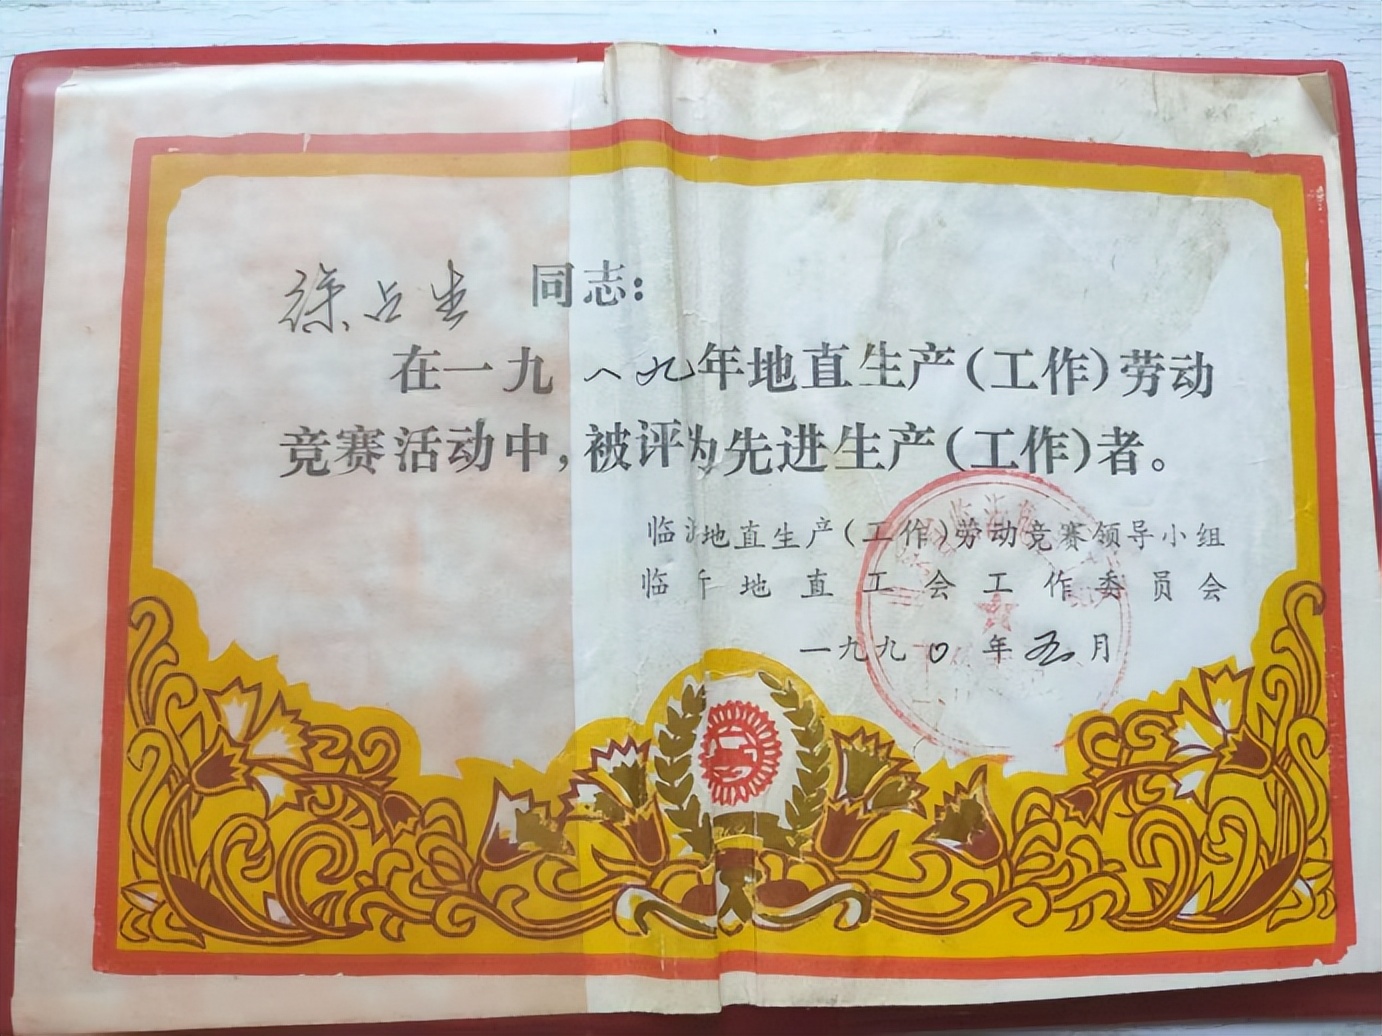 徐占生 同志：
在一九八九年地直生产(工作)劳动
竞赛活动中,被评为先进生产(工作)者。
临沂地直生产(工作)劳动竞赛领导小组
临沂地直工会工作委员会
一九九〇年五月